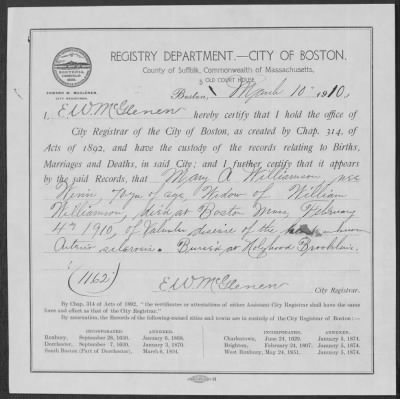 BOSTONIA
CONDITA A.D.
1630.
EDWARD W. McGLENEN,
CITY REGISTRAR.
REGISTRY DEPARTMENT.—CITY OF BOSTON.
County of Suffolk, Commonwealth of Massachusetts,
OLD COURT HOUSE,
Boston, March 10 1910.
I, E W McGlenen hereby certify that I hold the office of
City Registrar of the City of Boston, as created by Chap. 314, of
Acts of 1892, and have the custody of the records relating to Births,
Marriages and Deaths, in said City; and I further certify that it appears
by the said Records, that Mary A Williamson, nee
Winn 70 yrs of age, Widow of William
Williamson, died at Boston Mass, February
4th 1910, of Valvular disease of the
Arterio sclerosis. Buried at Holyhood Brookline.
(1162)
E W McGlenen
City Registrar.
By Chap. 314 of Acts of 1892, "the certificates or attestations of either Assistant City Registrar shall have the same
force and effect as that of the City Registrar."
By annexation, the Records of the following-named cities and towns are in custody of the City Registrar of Boston:—
INCORPORATED. ANNEXED. INCORPORATED. ANNEXED.
Roxbury, September 28, 1630. January 6, 1868. Charlestown, June 24, 1629. January 5, 1874.
Dorchester, September 7, 1630. January 3, 1870. Brighton, February 24, 1807. January 5, 1874.
South Boston (Part of Dorchester). March 6, 1804. West Roxbury, May 24, 1851. January 5, 1874.